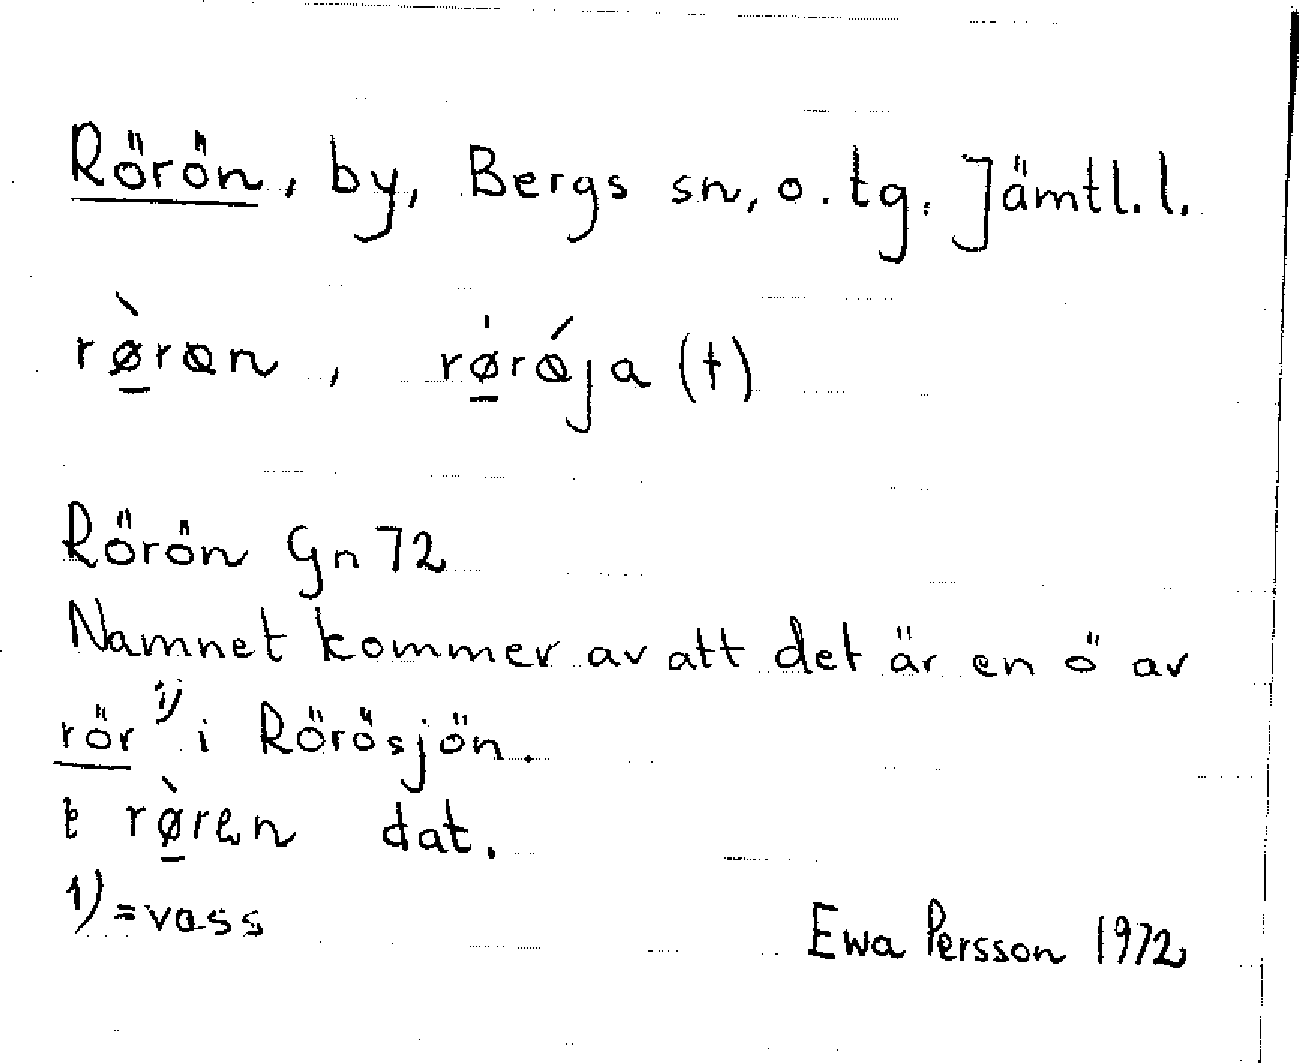 Rörön, by, Bergs sn, o. tg. Jämtl. l.
rø̲̀ron, rø̲̍rǿja (†)
Rörön Gn 72
Namnet kommer av att det är en ö av
rör ¹⁾ i Rörösjön.
t rø̲̀ren dat.
1) = vass
Ewa Persson 1972